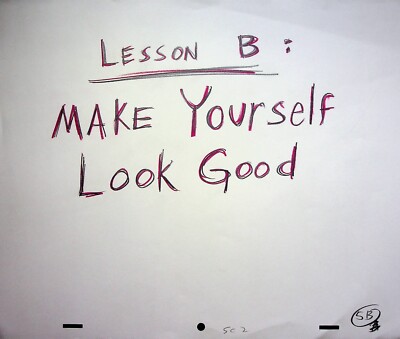 LESSON B:
MAKE Yourself
Look Good
SC 2
SB